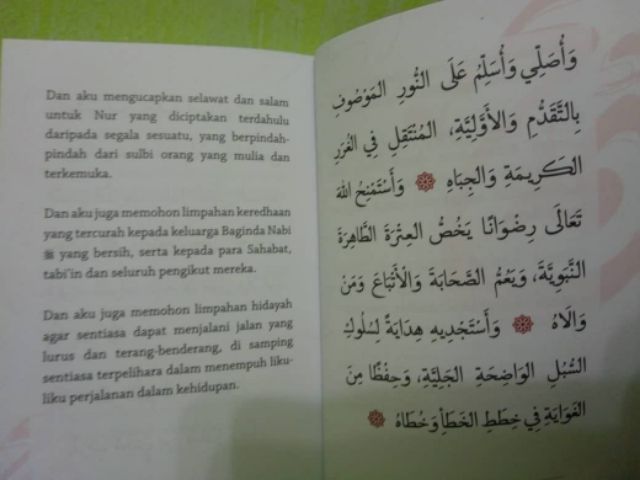 Dan aku mengucapkan selawat dan salam
untuk Nur yang diciptakan terdahulu
daripada segala sesuatu, yang berpindah-
pindah dari sulbi orang yang mulia dan
terkemuka.
Dan aku juga memohon limpahan keredhaan
yang tercurah kepada keluarga Baginda Nabi
ﷺ yang bersih, serta kepada para Sahabat,
tabi'in dan seluruh pengikut mereka.
Dan aku juga memohon limpahan hidayah
agar sentiasa dapat menjalani jalan yang
lurus dan terang-benderang, di samping
sentiasa terpelihara dalam menempuh liku-
liku perjalanan dalam kehidupan.
وَأُصَلِّي وَأُسَلِّمُ عَلَى النُّورِ المَوْصُوفِ
بِالتَّقَدُّمِ وَالأَوَّلِيَّةِ، المُنْتَقِلِ فِي الغُرَرِ
الكَرِيمَةِ وَالجِبَاهِ ۞ وَأَسْتَمْنِحُ اللهَ
تَعَالَى رِضْوَانًا يَخُصُّ العِتْرَةَ الطَّاهِرَةَ
النَّبَوِيَّةَ، وَيَعُمُّ الصَّحَابَةَ وَالْأَتْبَاعَ وَمَنْ
وَالَاهُ ۞ وَأَسْتَجْدِيهِ هِدَايَةً لِسُلُوكِ
السُّبُلِ الوَاضِحَةِ الجَلِيَّةِ، وَحِفْظًا مِنَ
الغَوَايَةِ فِي خِطَطِ الخَطَأِ وَخُطَاهُ ۞